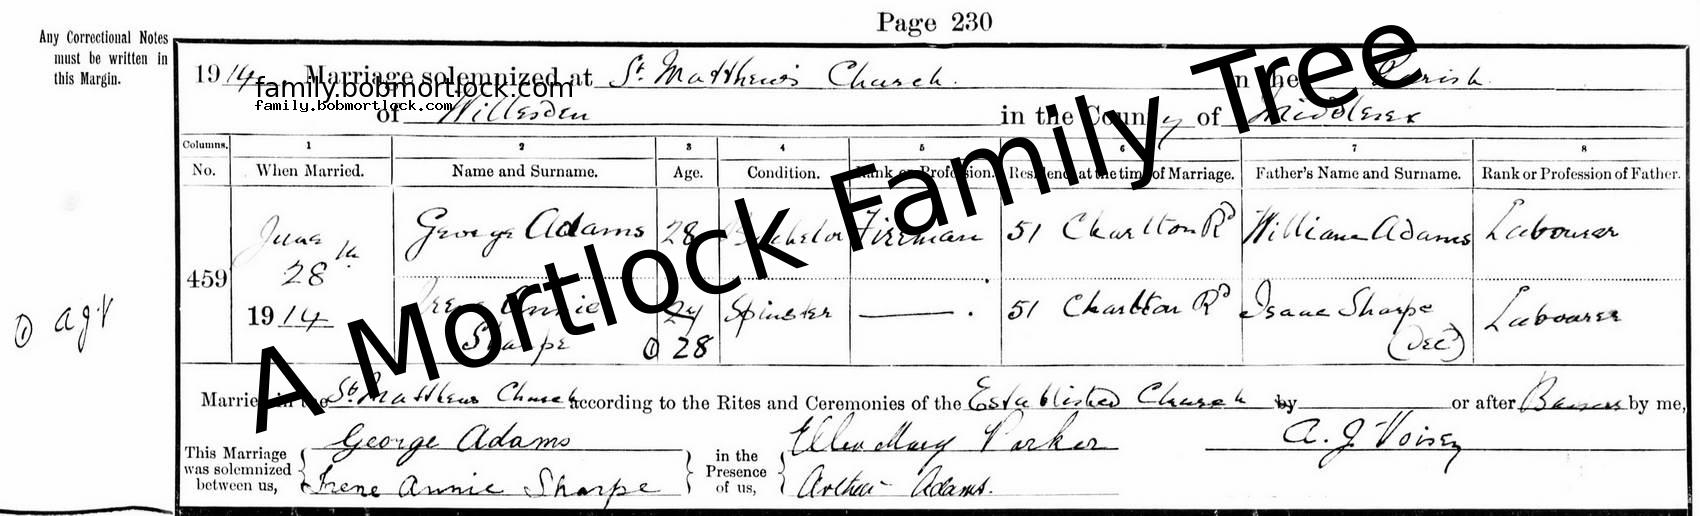 Page 230
Any Correctional Notes
must be written in
this Margin.
1914 Marriage solemnized at St. Matthew's Church. in the Parish
family.bobmortlock.com
family.bobmortlock.com
of Willesden in the County of Middlesex
Columns. 1 2 3 4 5 6 7 8
No. When Married. Name and Surname. Age. Condition. Rank or Profession. Residence at the time of Marriage. Father's Name and Surname. Rank or Profession of Father.
459 June 28th 1914 George Adams 28 Bachelor Fireman 51 Charlton Rd William Adams Labourer
Irene Annie Sharpe 24 28 Spinster — 51 Charlton Rd Isaac Sharpe (Dec) Labourer
A Mortlock Family Tree
Married in the St. Matthews Church according to the Rites and Ceremonies of the Established Church by or after Banns by me,
This Marriage was solemnized between us, George Adams
Irene Annie Sharpe
in the Presence of us, Ellen Mary Parker
Arthur Adams.
A. J. Voisey